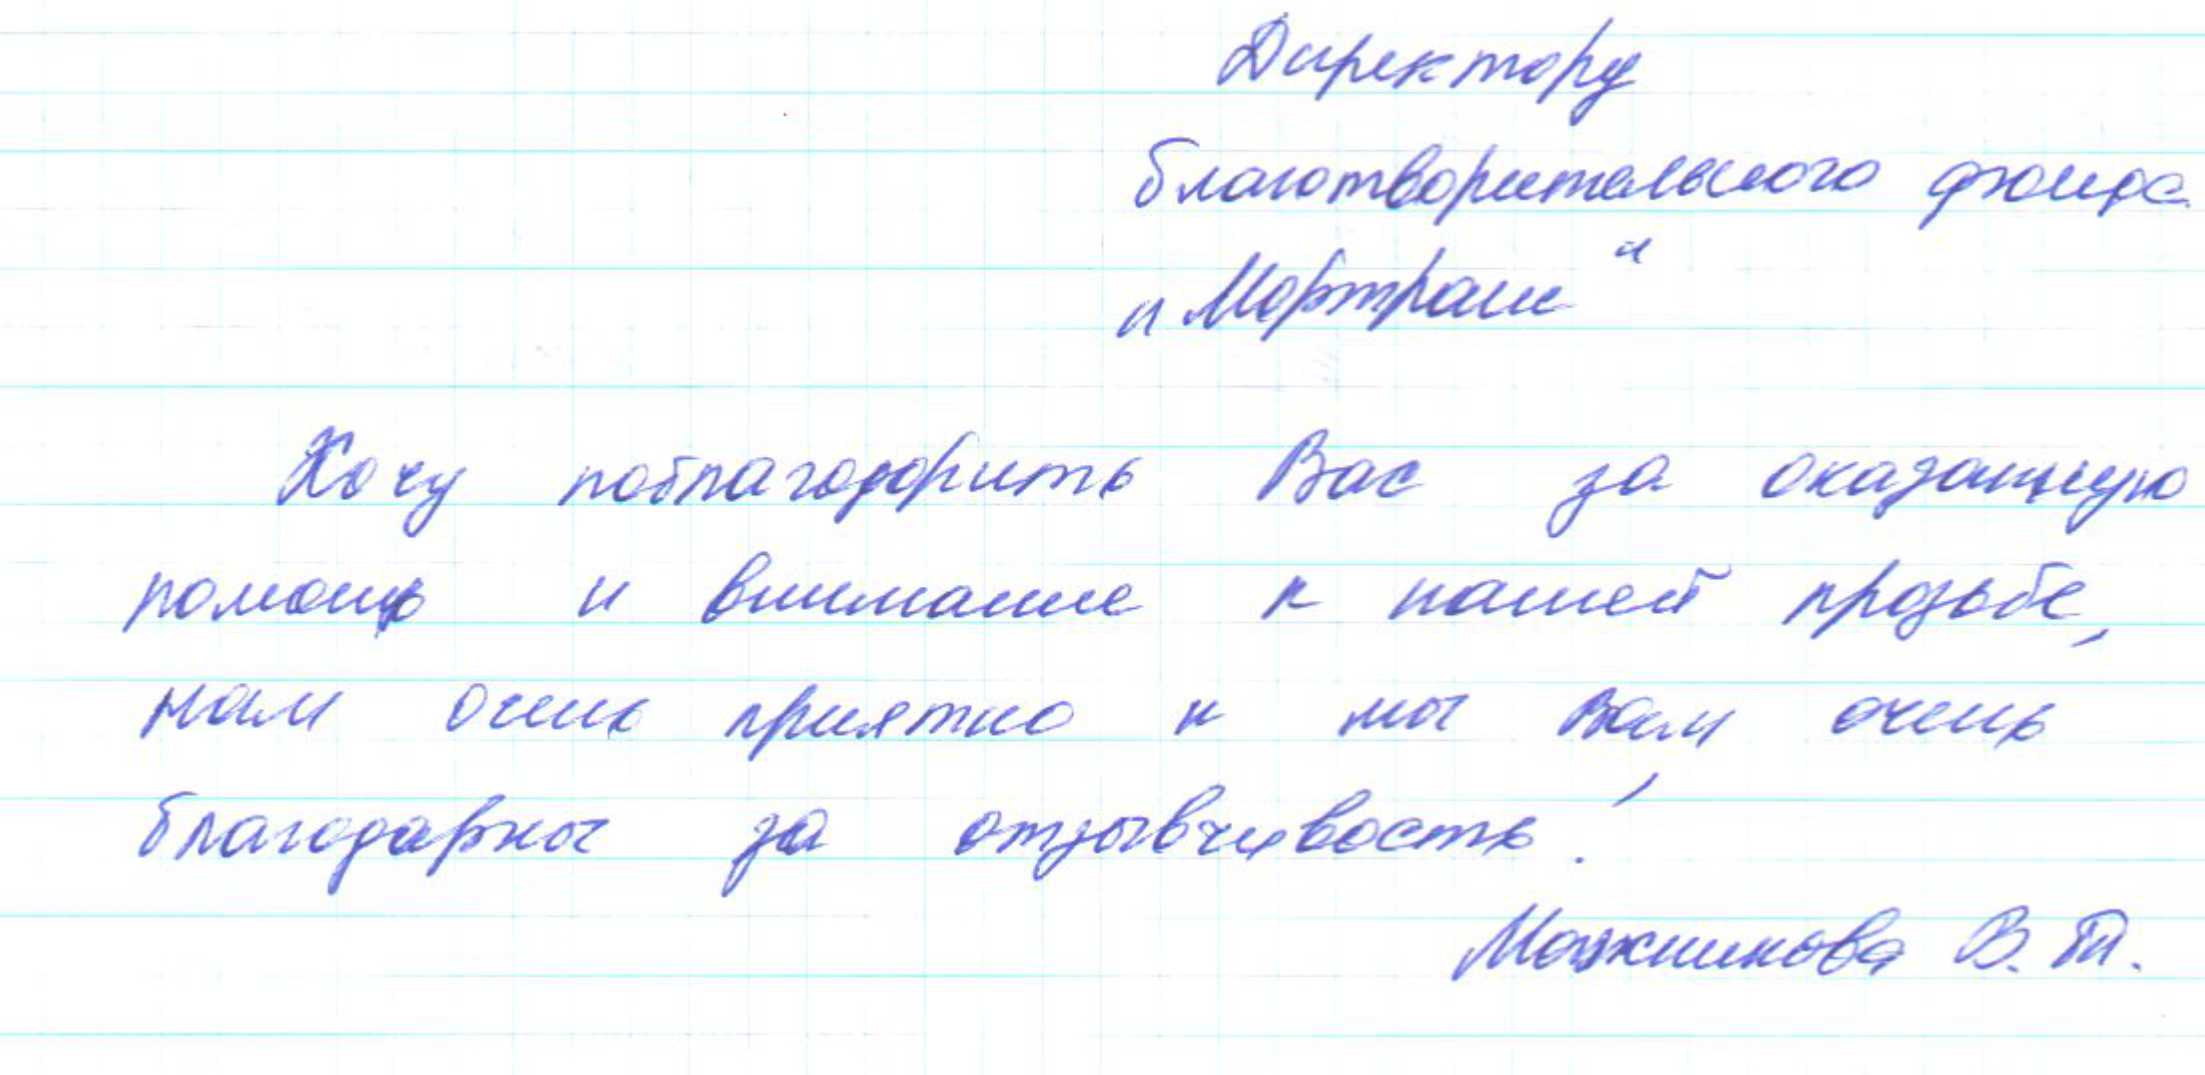 Директору
благотворительного фонда
"Мортранс"
Хочу поблагодорить Вас за оказанную
помощь и внимание к нашей прозьбе,
нам очень приятно и мы Вам очень
благодарны за отзывчивость!
В. Т.